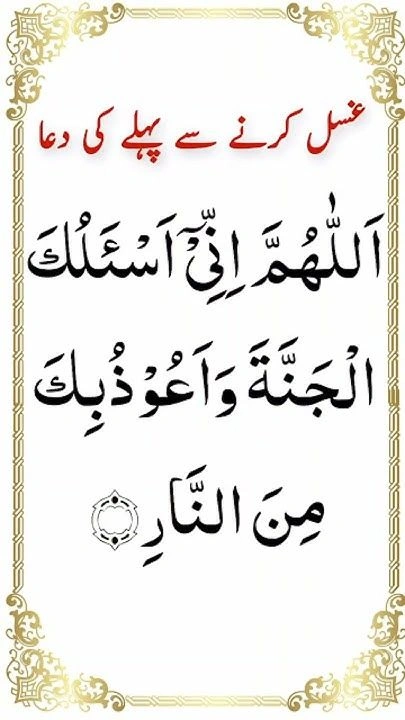 غسل کرنے سے پہلے کی دعا
اَللّٰهُمَّ اِنِّیْٓ اَسْئَلُكَ
الْجَنَّةَ وَاَعُوْذُبِكَ
مِنَ النَّارِ